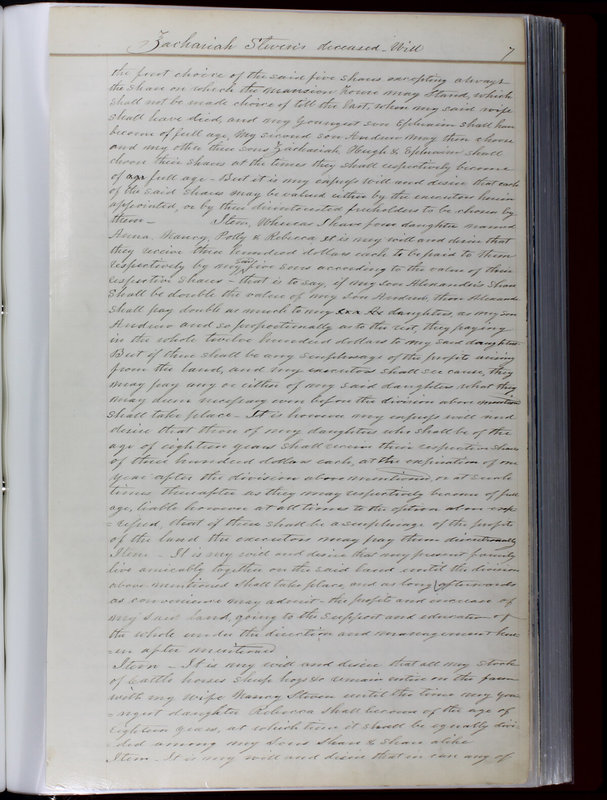 Zachariah Steven's deceased Will 7
the first choice of the said five shares excepting always
the share on which the mansion House may stand, which
shall not be made choice of till the last, when my said wife
shall have died, and my youngest son Ephraim shall have
become of full age, My second son Andrew may then choose
and my other three sons Zachariah, Hugh & Ephraim shall
choose their shares at the times they shall respectively become
of full age - But it is my express will and desire that each
of the said shares may be valued either by the executors herein
appointed, or by three disinterested freeholders to be chosen by
them - Item, Whereas I have four daughters named
Anna, Nancy, Polly & Rebecca it is my will and desire that
they receive three hundred dollars each to be paid to them
respectively by my said five sons according to the value of their
respective shares - that is to say, if my son Alexander's share
shall be double the value of my son Andrew, then Alexander
shall pay double as much to my daughters, as my son
Andrew and so proportionally as to the rest, they paying
in the whole twelve hundred dollars to my said daughters
But if there shall be any surplusage of the profits arising
from the land, and my executors shall see cause, they
may pay any or either of my said daughters what they
may deem necessary even before the division above mentioned
shall take place. It is however my express will and
desire that those of my daughters who shall be of the
age of eighteen years shall receive their respective shares
of three hundred dollars each, at the expiration of one
year after the division above mentioned, or at such
times thereafter as they may respectively become of full
age, liable however at all times to the option above exp-
-ressed, that if there shall be a surplusage of the profits
of the land the executors may pay them discretionally
Item - It is my will and desire that my present family
live amicably together on the said land until the division
above mentioned shall take place, and as long afterwards
as convenience may admit - the profits and increase of
my said land, going to the support and education of
the whole under the direction and management here-
-in after mentioned
Item - It is my will and desire that all my stock
of cattle horses sheep hogs &c remain entire on the farm
with my wife Nancy Steven until the time my you-
-ngest daughter Rebecca shall become of the age of
Eighteen years, at which time it shall be equally divi-
-ded among my Sons Share & Share alike
Item - It is my will and desire that in case any of